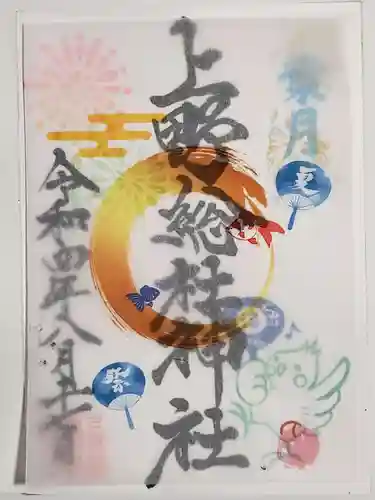 葉月
夏
上野總社神社
祭
令和四年八月十一日